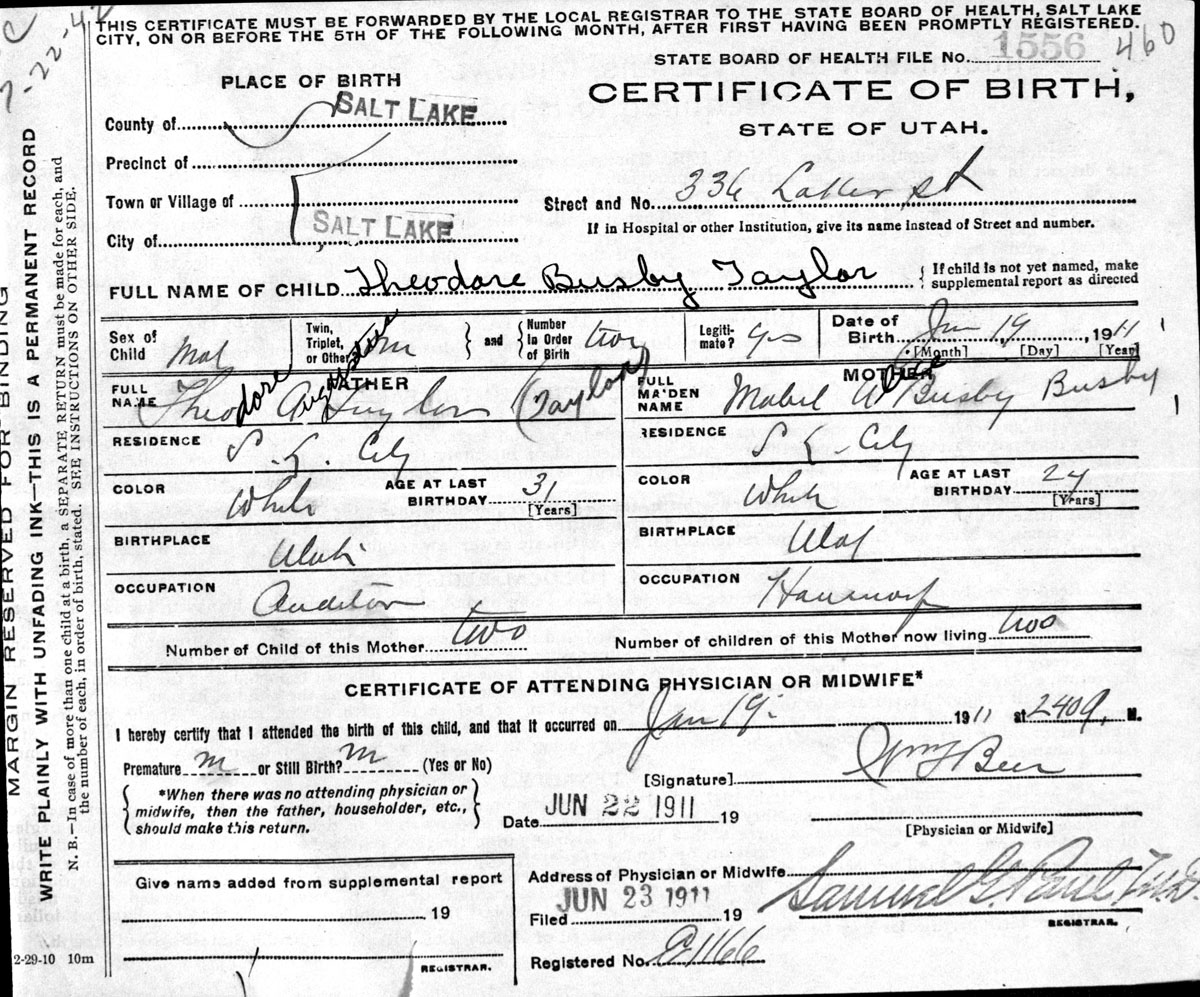 THIS CERTIFICATE MUST BE FORWARDED BY THE LOCAL REGISTRAR TO THE STATE BOARD OF HEALTH, SALT LAKE
CITY, ON OR BEFORE THE 5TH OF THE FOLLOWING MONTH, AFTER FIRST HAVING BEEN PROMPTLY REGISTERED.
STATE BOARD OF HEALTH FILE No. 1556 460
PLACE OF BIRTH
CERTIFICATE OF BIRTH,
STATE OF UTAH.
County of SALT LAKE
Precinct of
Town or Village of
Street and No. 336
City of SALT LAKE
If in Hospital or other Institution, give its name instead of Street and number.
FULL NAME OF CHILD Theodore Busby Taylor { If child is not yet named, make
supplemental report as directed
Sex of Child Mal
Twin, Triplet, or Other
and
Number In Order of Birth two
Legitimate? yes
Date of Birth 19, 1911
[Month] [Day] [Year]
FATHER
FULL NAME Theodore Augustus Taylor (Taylor)
MOTHER
FULL MAIDEN NAME Mabel Busby Busby
RESIDENCE S. L. City
RESIDENCE S. L. City
COLOR White AGE AT LAST BIRTHDAY 31 [Years]
COLOR White AGE AT LAST BIRTHDAY [Years]
BIRTHPLACE Utah
BIRTHPLACE Utah
OCCUPATION Auditor
OCCUPATION
Number of Child of this Mother two
Number of children of this Mother now living two
CERTIFICATE OF ATTENDING PHYSICIAN OR MIDWIFE*
I hereby certify that I attended the birth of this child, and that it occurred on 19 1911 at M.
Premature or Still Birth? (Yes or No)
[Signature] Wm F Beer
*When there was no attending physician or
midwife, then the father, householder, etc.,
should make this return.
Date JUN 22 1911 19
[Physician or Midwife]
Address of Physician or Midwife
Give name added from supplemental report
19
REGISTRAR.
Filed JUN 23 1911 19
Samuel G. Paul
REGISTRAR.
Registered No. 1166
2-29-10 10m
MARGIN RESERVED FOR BINDING
WRITE PLAINLY WITH UNFADING INK—THIS IS A PERMANENT RECORD
N. B.—In case of more than one child at a birth, a SEPARATE RETURN must be made for each, and
the number of each, in order of birth, stated. SEE INSTRUCTIONS ON OTHER SIDE.